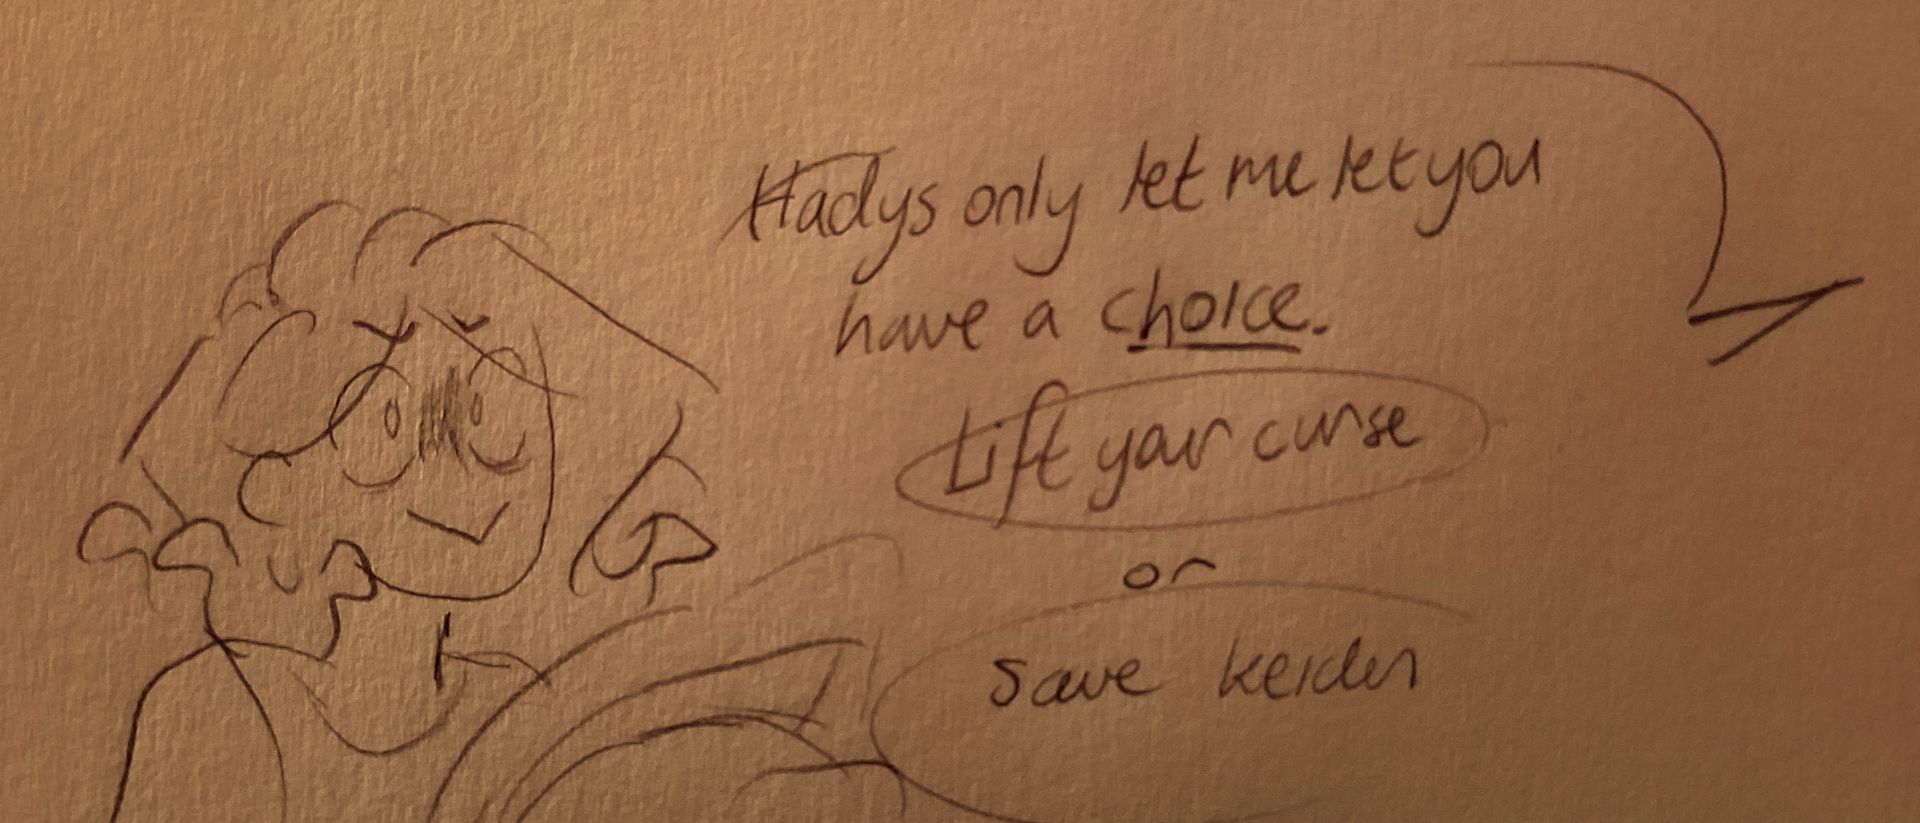 Hadys only let me let you
have a choice.
Lift your curse
or
save keiden